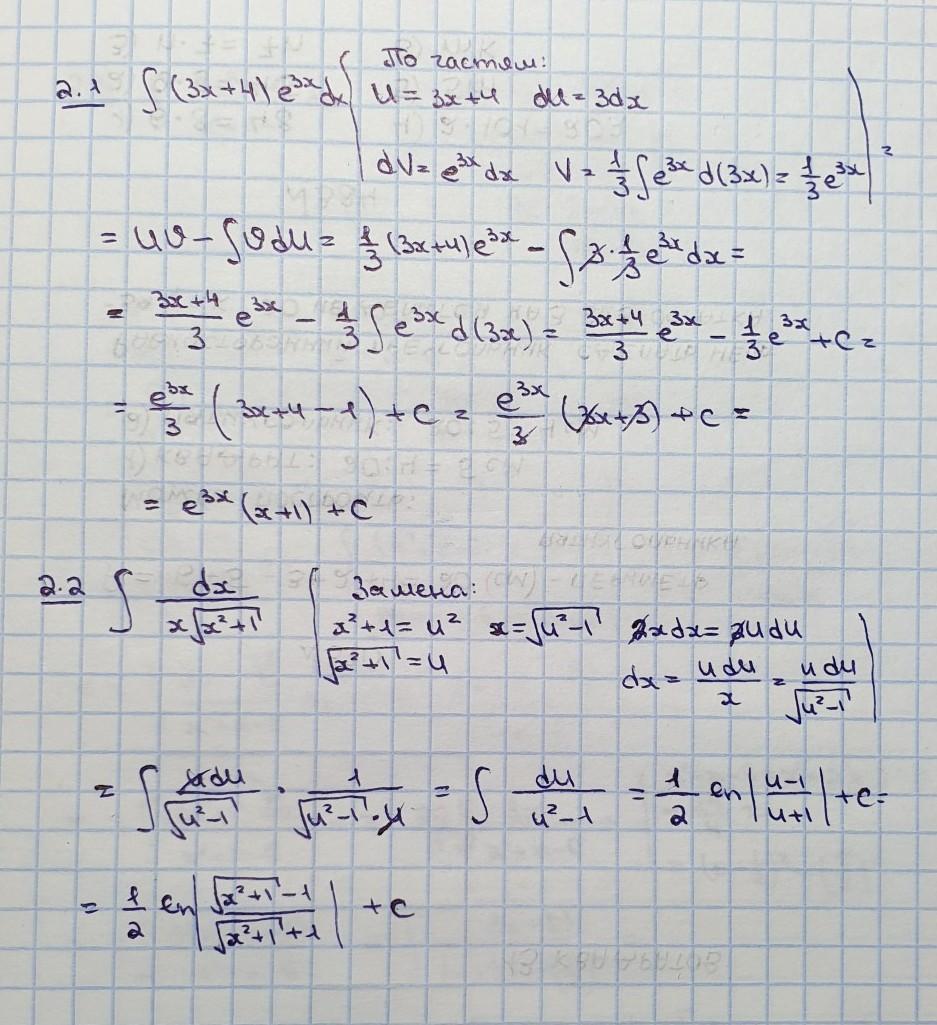 2.1 ∫(3x+4)e^{3x}dx | По частям:
U = 3x+4 dU = 3dx
dV = e^{3x}dx V = \frac{1}{3}∫e^{3x}d(3x) = \frac{1}{3}e^{3x} | =
= UV - ∫VdU = \frac{1}{3}(3x+4)e^{3x} - ∫3·\frac{1}{3}e^{3x}dx =
= \frac{3x+4}{3}e^{3x} - \frac{1}{3}∫e^{3x}d(3x) = \frac{3x+4}{3}e^{3x} - \frac{1}{3}e^{3x} + C =
= \frac{e^{3x}}{3}(3x+4-1) + C = \frac{e^{3x}}{3}(3x+3) + C =
= e^{3x}(x+1) + C
2.2 ∫\frac{dx}{x\sqrt{x^2+1}} | Замена:
x^2+1 = U^2 x = \sqrt{U^2-1} 2xdx = 2UdU
\sqrt{x^2+1} = U dx = \frac{UdU}{x} = \frac{UdU}{\sqrt{U^2-1}} |
= ∫\frac{UdU}{\sqrt{U^2-1}} · \frac{1}{\sqrt{U^2-1}·U} = ∫\frac{dU}{U^2-1} = \frac{1}{2}ln|\frac{U-1}{U+1}| + C =
= \frac{1}{2}ln|\frac{\sqrt{x^2+1}-1}{\sqrt{x^2+1}+1}| + C